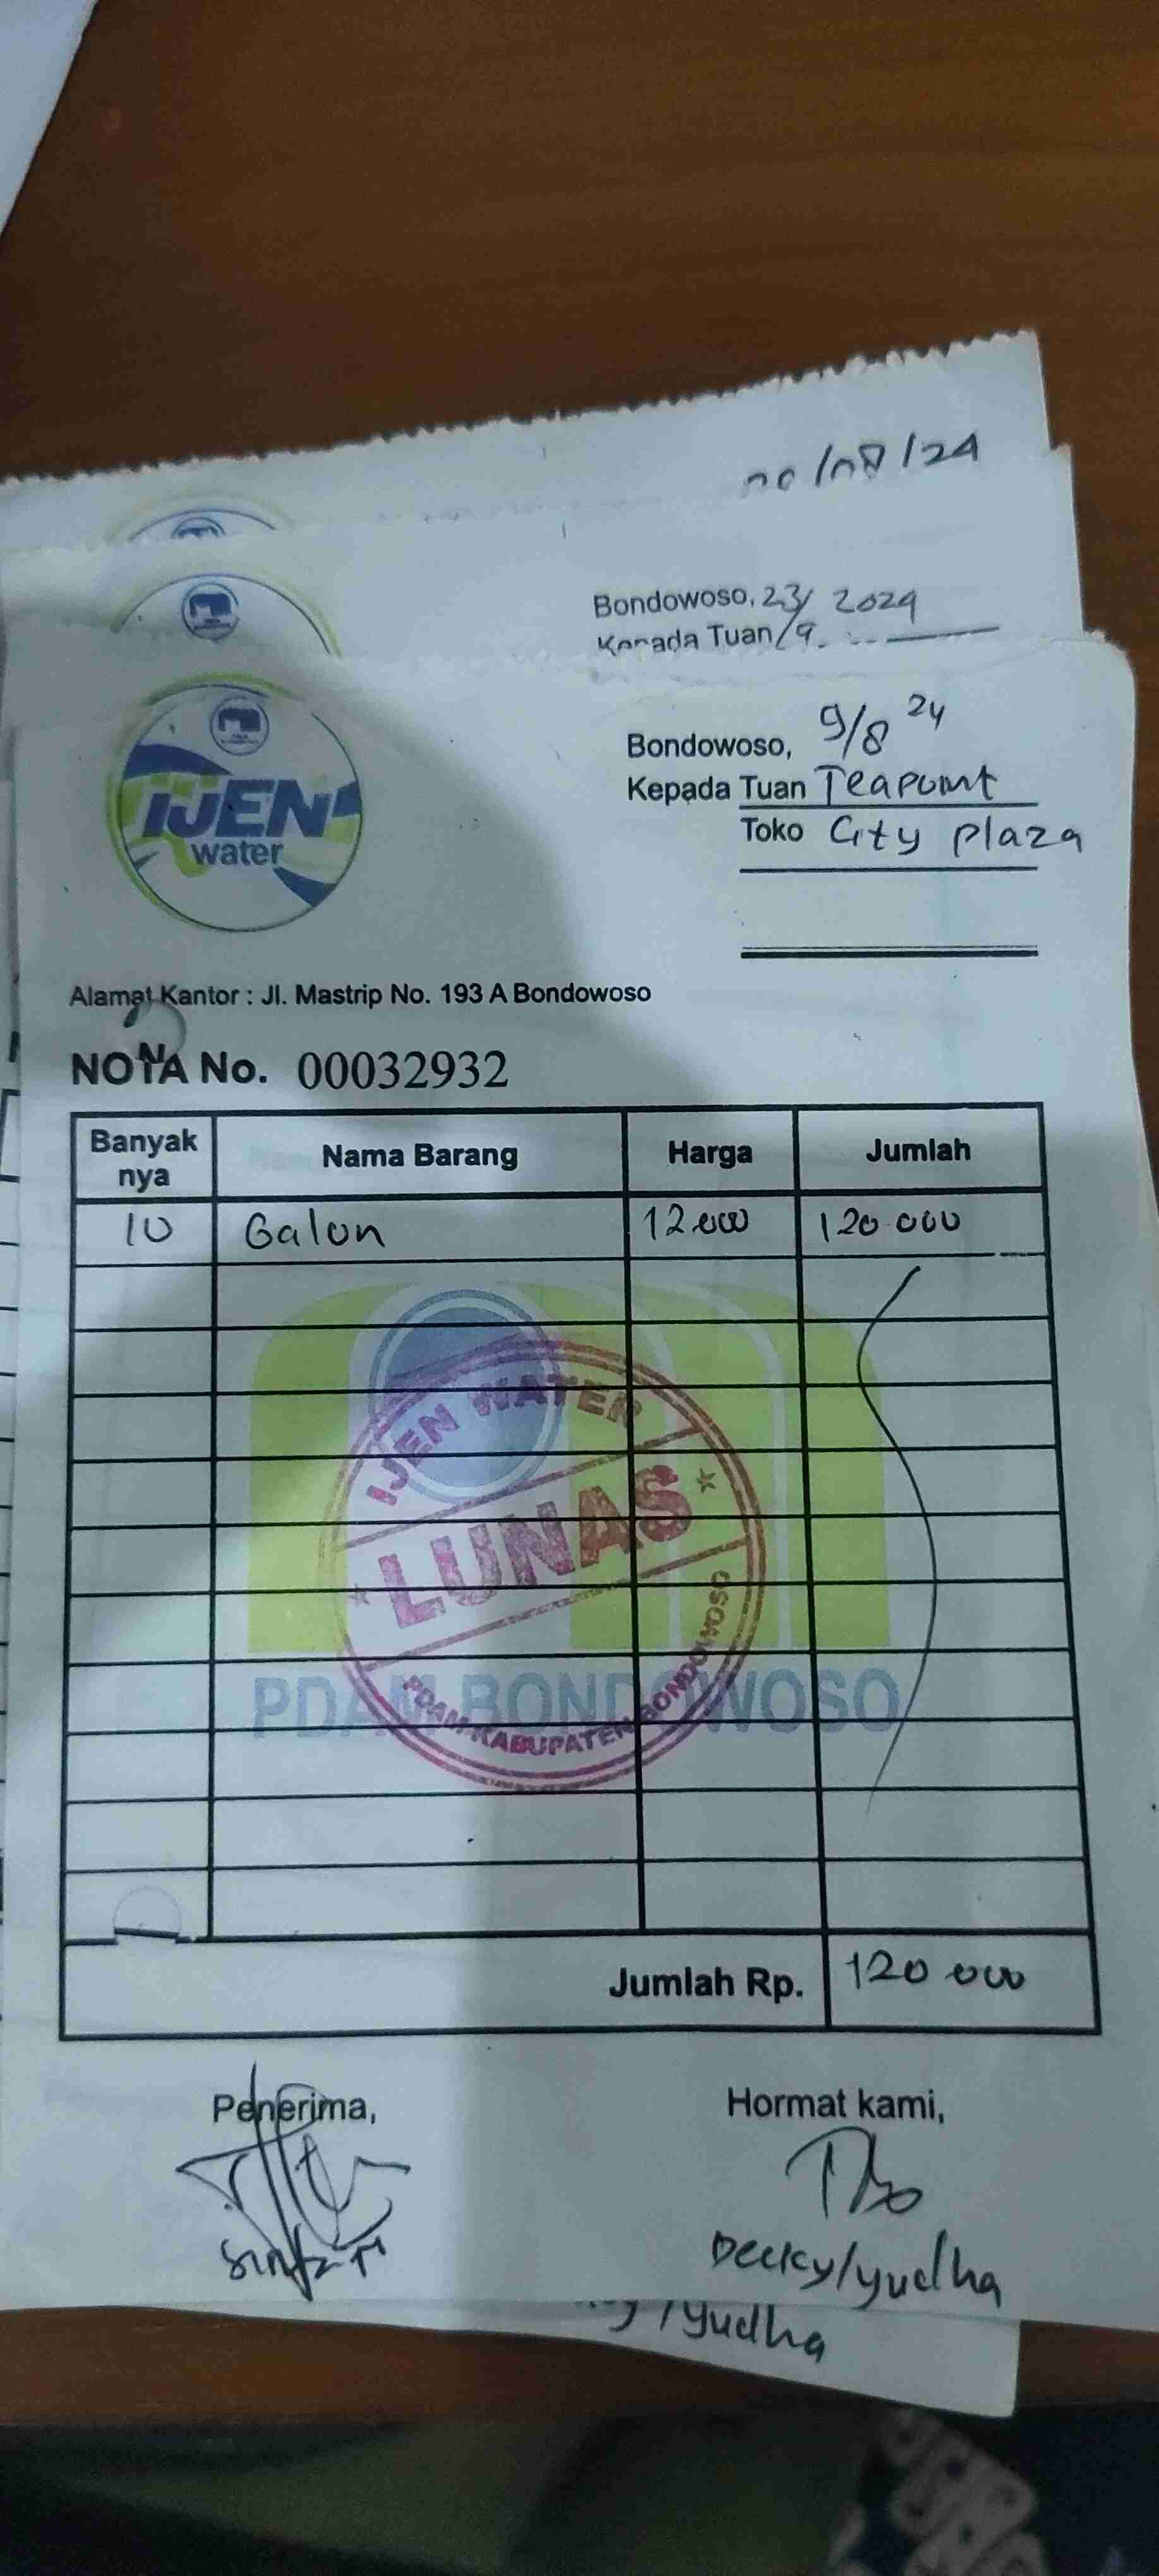 /08/24
Bondowoso, 23/ 2024
Kepada Tuan /9.
IJEN
water
Bondowoso, 9/8 24
Kepada Tuan Teapoint
Toko City Plaza
Alamat Kantor : Jl. Mastrip No. 193 A Bondowoso
NOTA No. 00032932
Banyak nya Nama Barang Harga Jumlah
10 Galon 12.000 120.000
IJEN WATER
LUNAS
PDAM KABUPATEN BONDOWOSO
PDAM BONDOWOSO
Jumlah Rp. 120 000
Penerima, Hormat kami,
Decky/yudha
/yudha